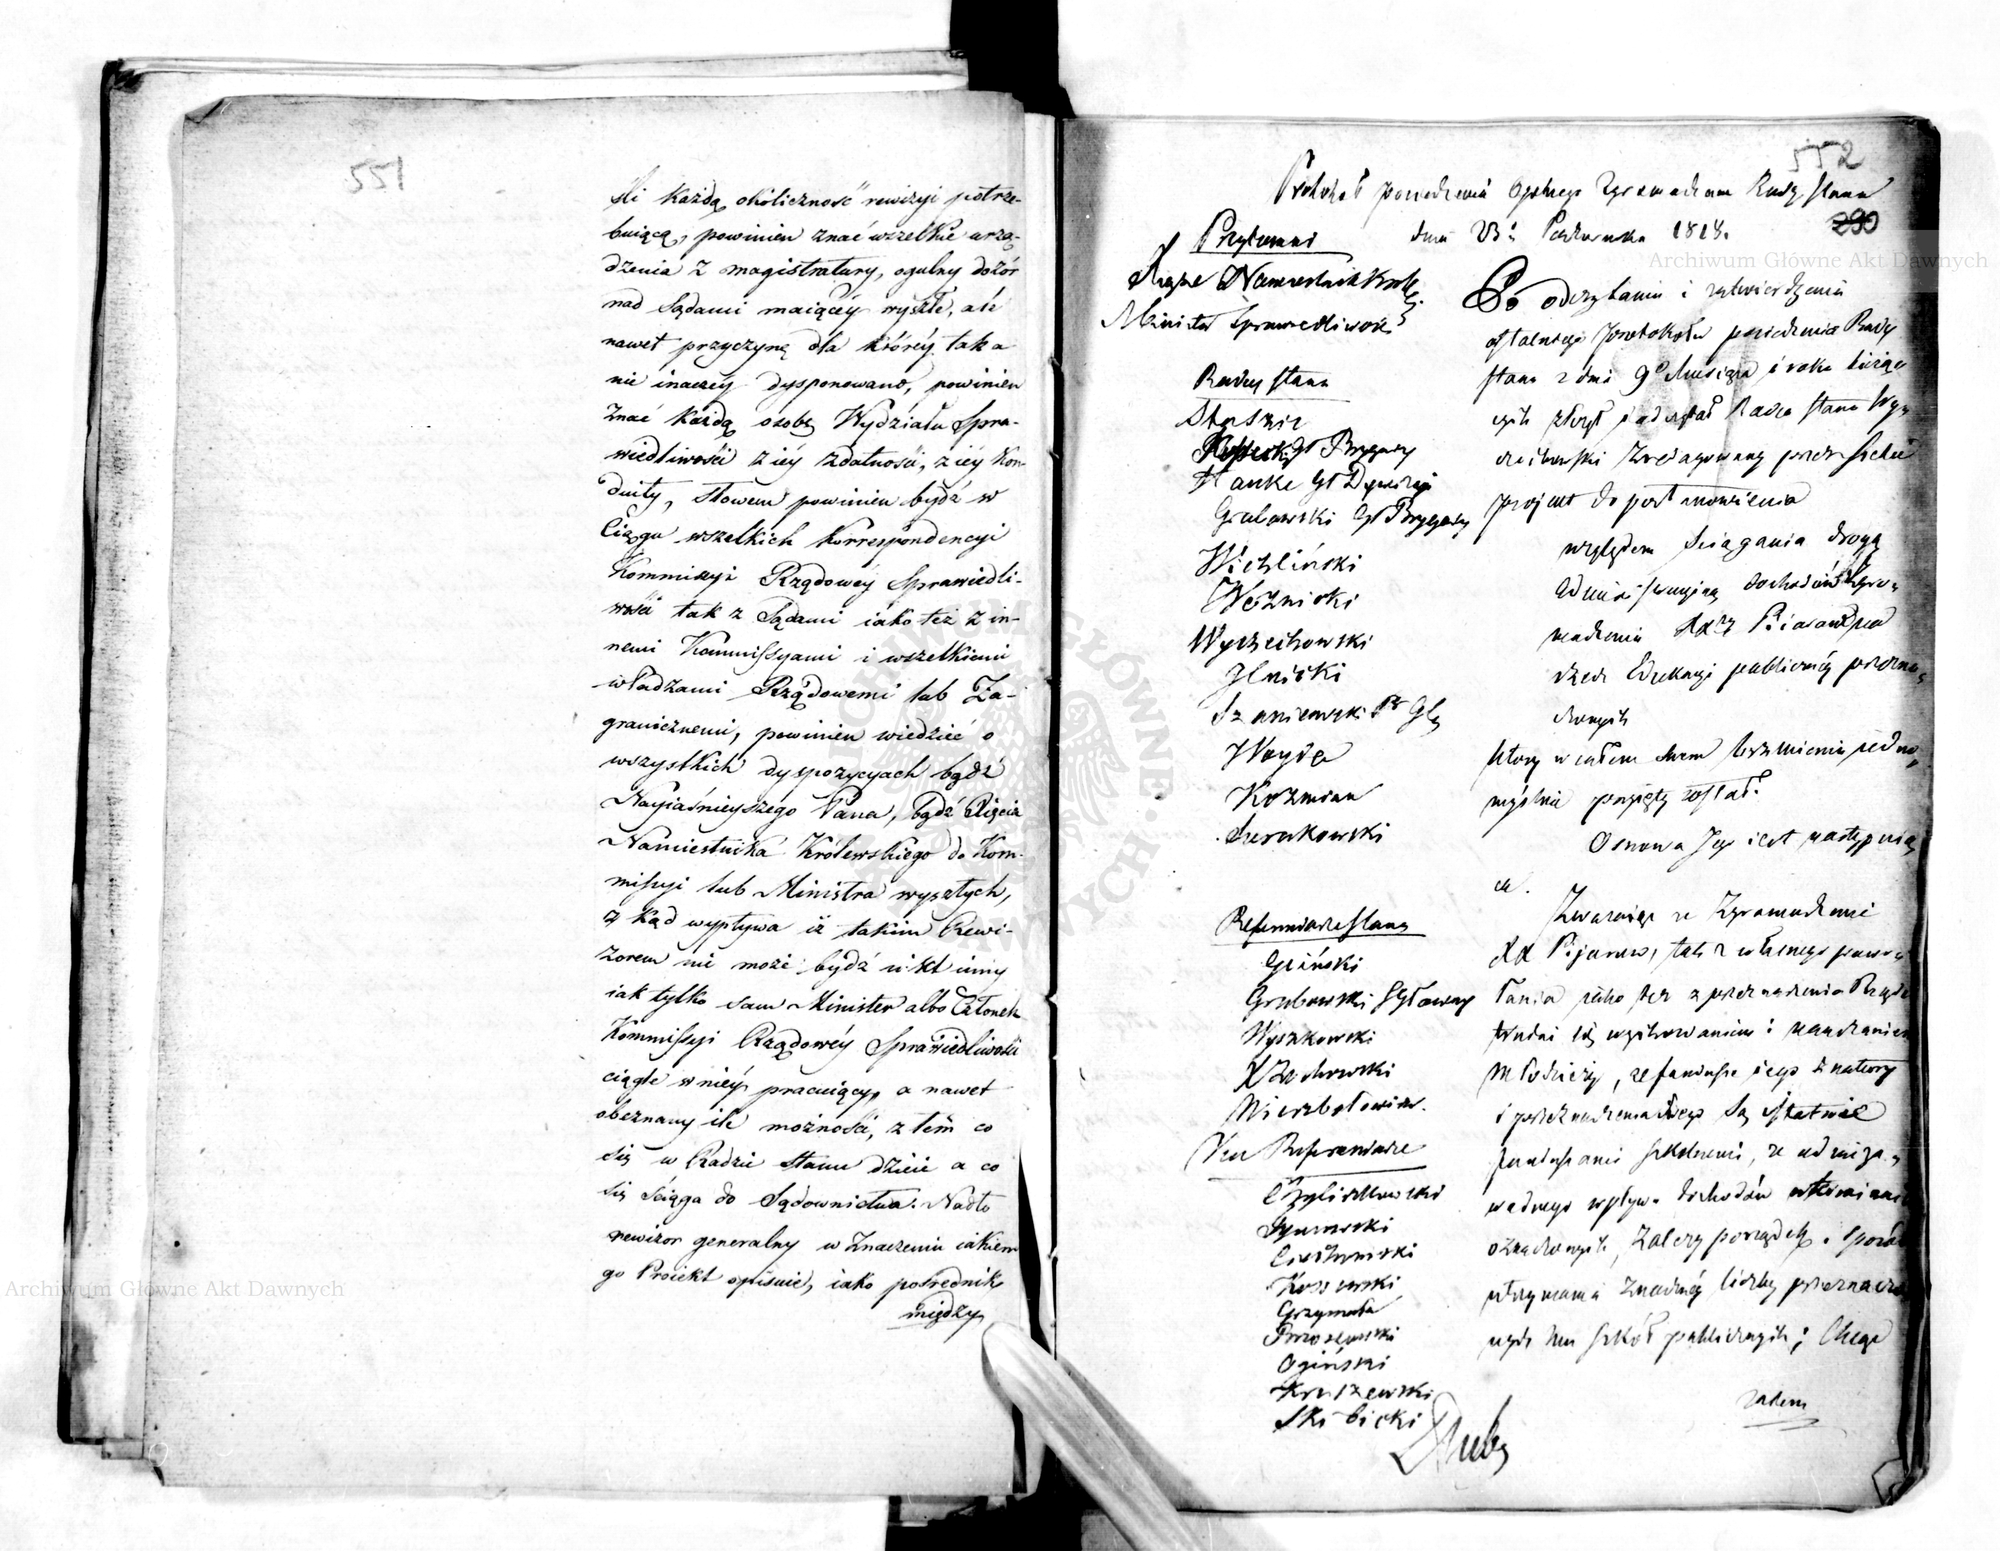 551
śli każdą okoliczność rewizyi potrze-
buiącą, powinien znać wszelkie urzą-
dzenia z magistratury, ogulny dozór
nad Sądami maiącéy wyszłe, ale
nawet przyczynę dla któréy tak a
nie inaczéy dysponowano, powinien
znać każdą osobę Wydziału Spra-
wiedliwości z iéy zdatności, z iéy kon-
duity, słowem powinien bydź w
Ciągu wszelkich korrespondencyi
Kommissyi Rządowéy Sprawiedli-
wości tak z Sądami iako też z in-
nemi Kommissyami i wszelkiemi
władzami Rządowemi lub Za-
granicznemi, powinien wiedzieć o
wszystkich dyspozycyach bądź
Nayiaśnieyszego Pana, bądź Xięcia
Namiestnika Królewskiego do Kom-
missyi lub Ministra wyszłych,
z kąd wypływa iż takim Rewi-
zorem nie może bydź nikt inny
iak tylko sam Minister albo Członek
Kommissyi Rządowéy Sprawiedliwości
ciągle w niéy pracuiący, a nawet
obeznany ile możności, z tém co
się w Radzie Stanu dzieie a co
się ściąga do Sądownictwa. Nadto
rewizor generalny w znaczeniu iakiem
go Proiekt opisuie, iako pośrednik
między
552
290
Protokół posiedzenia Ogólnego Zgromadzenia Rady Stanu
dnia 23º Października 1818.
Przytomni
Xiąże Namiestnik Królew.
Minister Sprawiedliwości
Radcy Stanu
Staszic
Kossecki Gł Brygady
Hauke Gł Dywizyi
Grabowski Gł Brygady
Wichliński
Woźnicki
Wyczechowski
Ilniński
Szaniewski Pr Gły
Woyda
Koźmian
Surakowski
Referendarze Stanu
Gliński
Grabowski
Wyszkowski
X Zochowski
Wierzbołowicz.
Nad Referendarze
Szymowski
Ciechanowski
Kossowski
Grzymała
Brzozowski
Ogiński
Kruszewski
Skibicki
Po odczytaniu i zatwierdzeniu
ostatniego protokołu posiedzenia Rady
Stanu z dnia 9º Miesiąca i roku bieżące-
go złożył i odczytał Radca Stanu Wy-
czechowski zredagowany przez siebie
projekt do postanowienia
względem ściągania drogą
administracyiną dochodów Zgro-
madzenia XXży Piiarów na
rzecz Edukacyi publicznéy przezna-
czonych
który w całem swem brzmieniu jedno-
myślnie przyjęty został.
Osnowa Jego iest następuią-
ca.
Zważaiąc że Zgromadzenie
XX Pijarów, tak z własnego powo-
łania jako też z przeznaczenia Rządu
trudni się wychowaniem i nauczaniem
młodzieży, że fundusze jego z natury
i przeznaczenia swego są istotnie
funduszami szkolnemi, że od nieza-
wodnego wpływu dochodów w terminach
oznaczonych, zależy porządek i sposób
utrzymania znacznéy liczby przeznaczo-
nych mu szkół publicznych; Chcąc
zatem
Archiwum Główne Akt Dawnych
Archiwum Główne Akt Dawnych